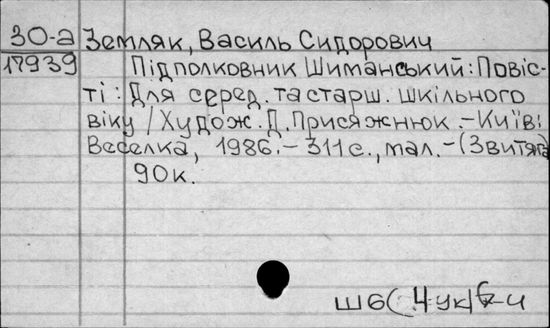 30-а Земляк, Василь Сидорович
17939 Підполковник Шиманський: Повіс-
ті: Для серед. та старш. шкільного
віку / Худож. Д. Присяжнюк. - Київ:
Веселка, 1986. - 311 с., мал. - (Звитяга)
90к.
Ш6(4ук)6-4